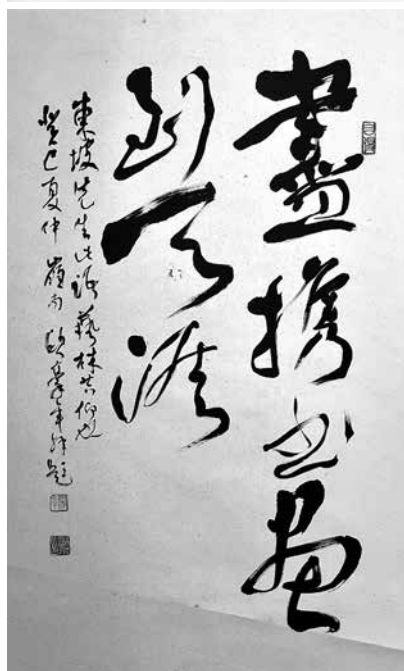 盡攜書畫
到天涯
東坡先生此語藝林共仰也
癸巳夏仲 嶺南 歐豪年題